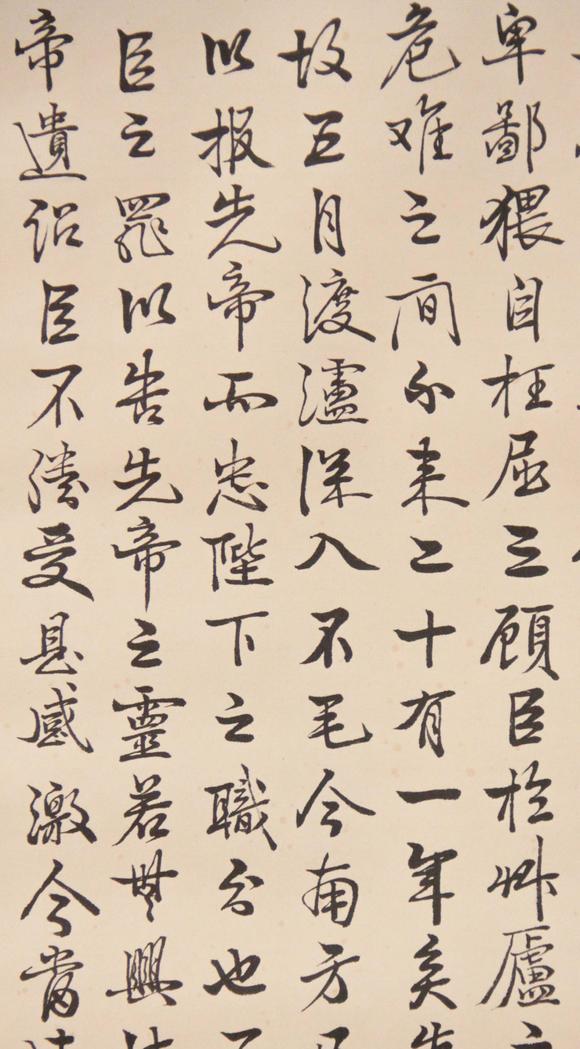 卑鄙猥自枉屈三顧臣於草廬之
危难之间尔来二十有一年矣先
故五月渡瀘深入不毛今南方已
以报先帝而忠陛下之職分也至
臣之罪以告先帝之靈若無興
帝遺诏臣不勝受恩感激今當